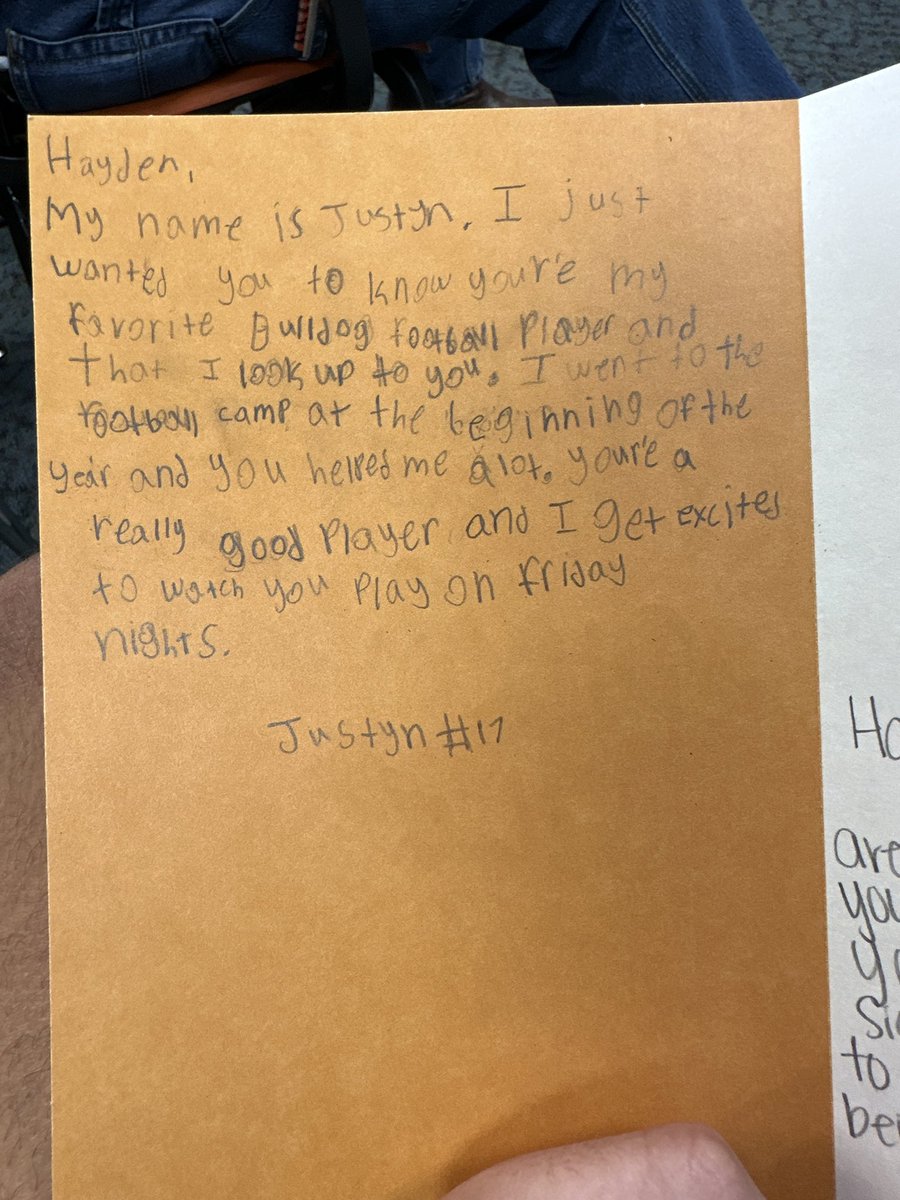 Hayden,
My name is Justyn. I just
wanted you to know your'e my
favorite Bulldog football Player and
that I look up to you. I went to the
football camp at the beginning of the
year and you helped me alot. your'e a
really good Player and I get excited
to watch you Play on friday
nights.
Justyn #17
Ha
are
you
si
to
be